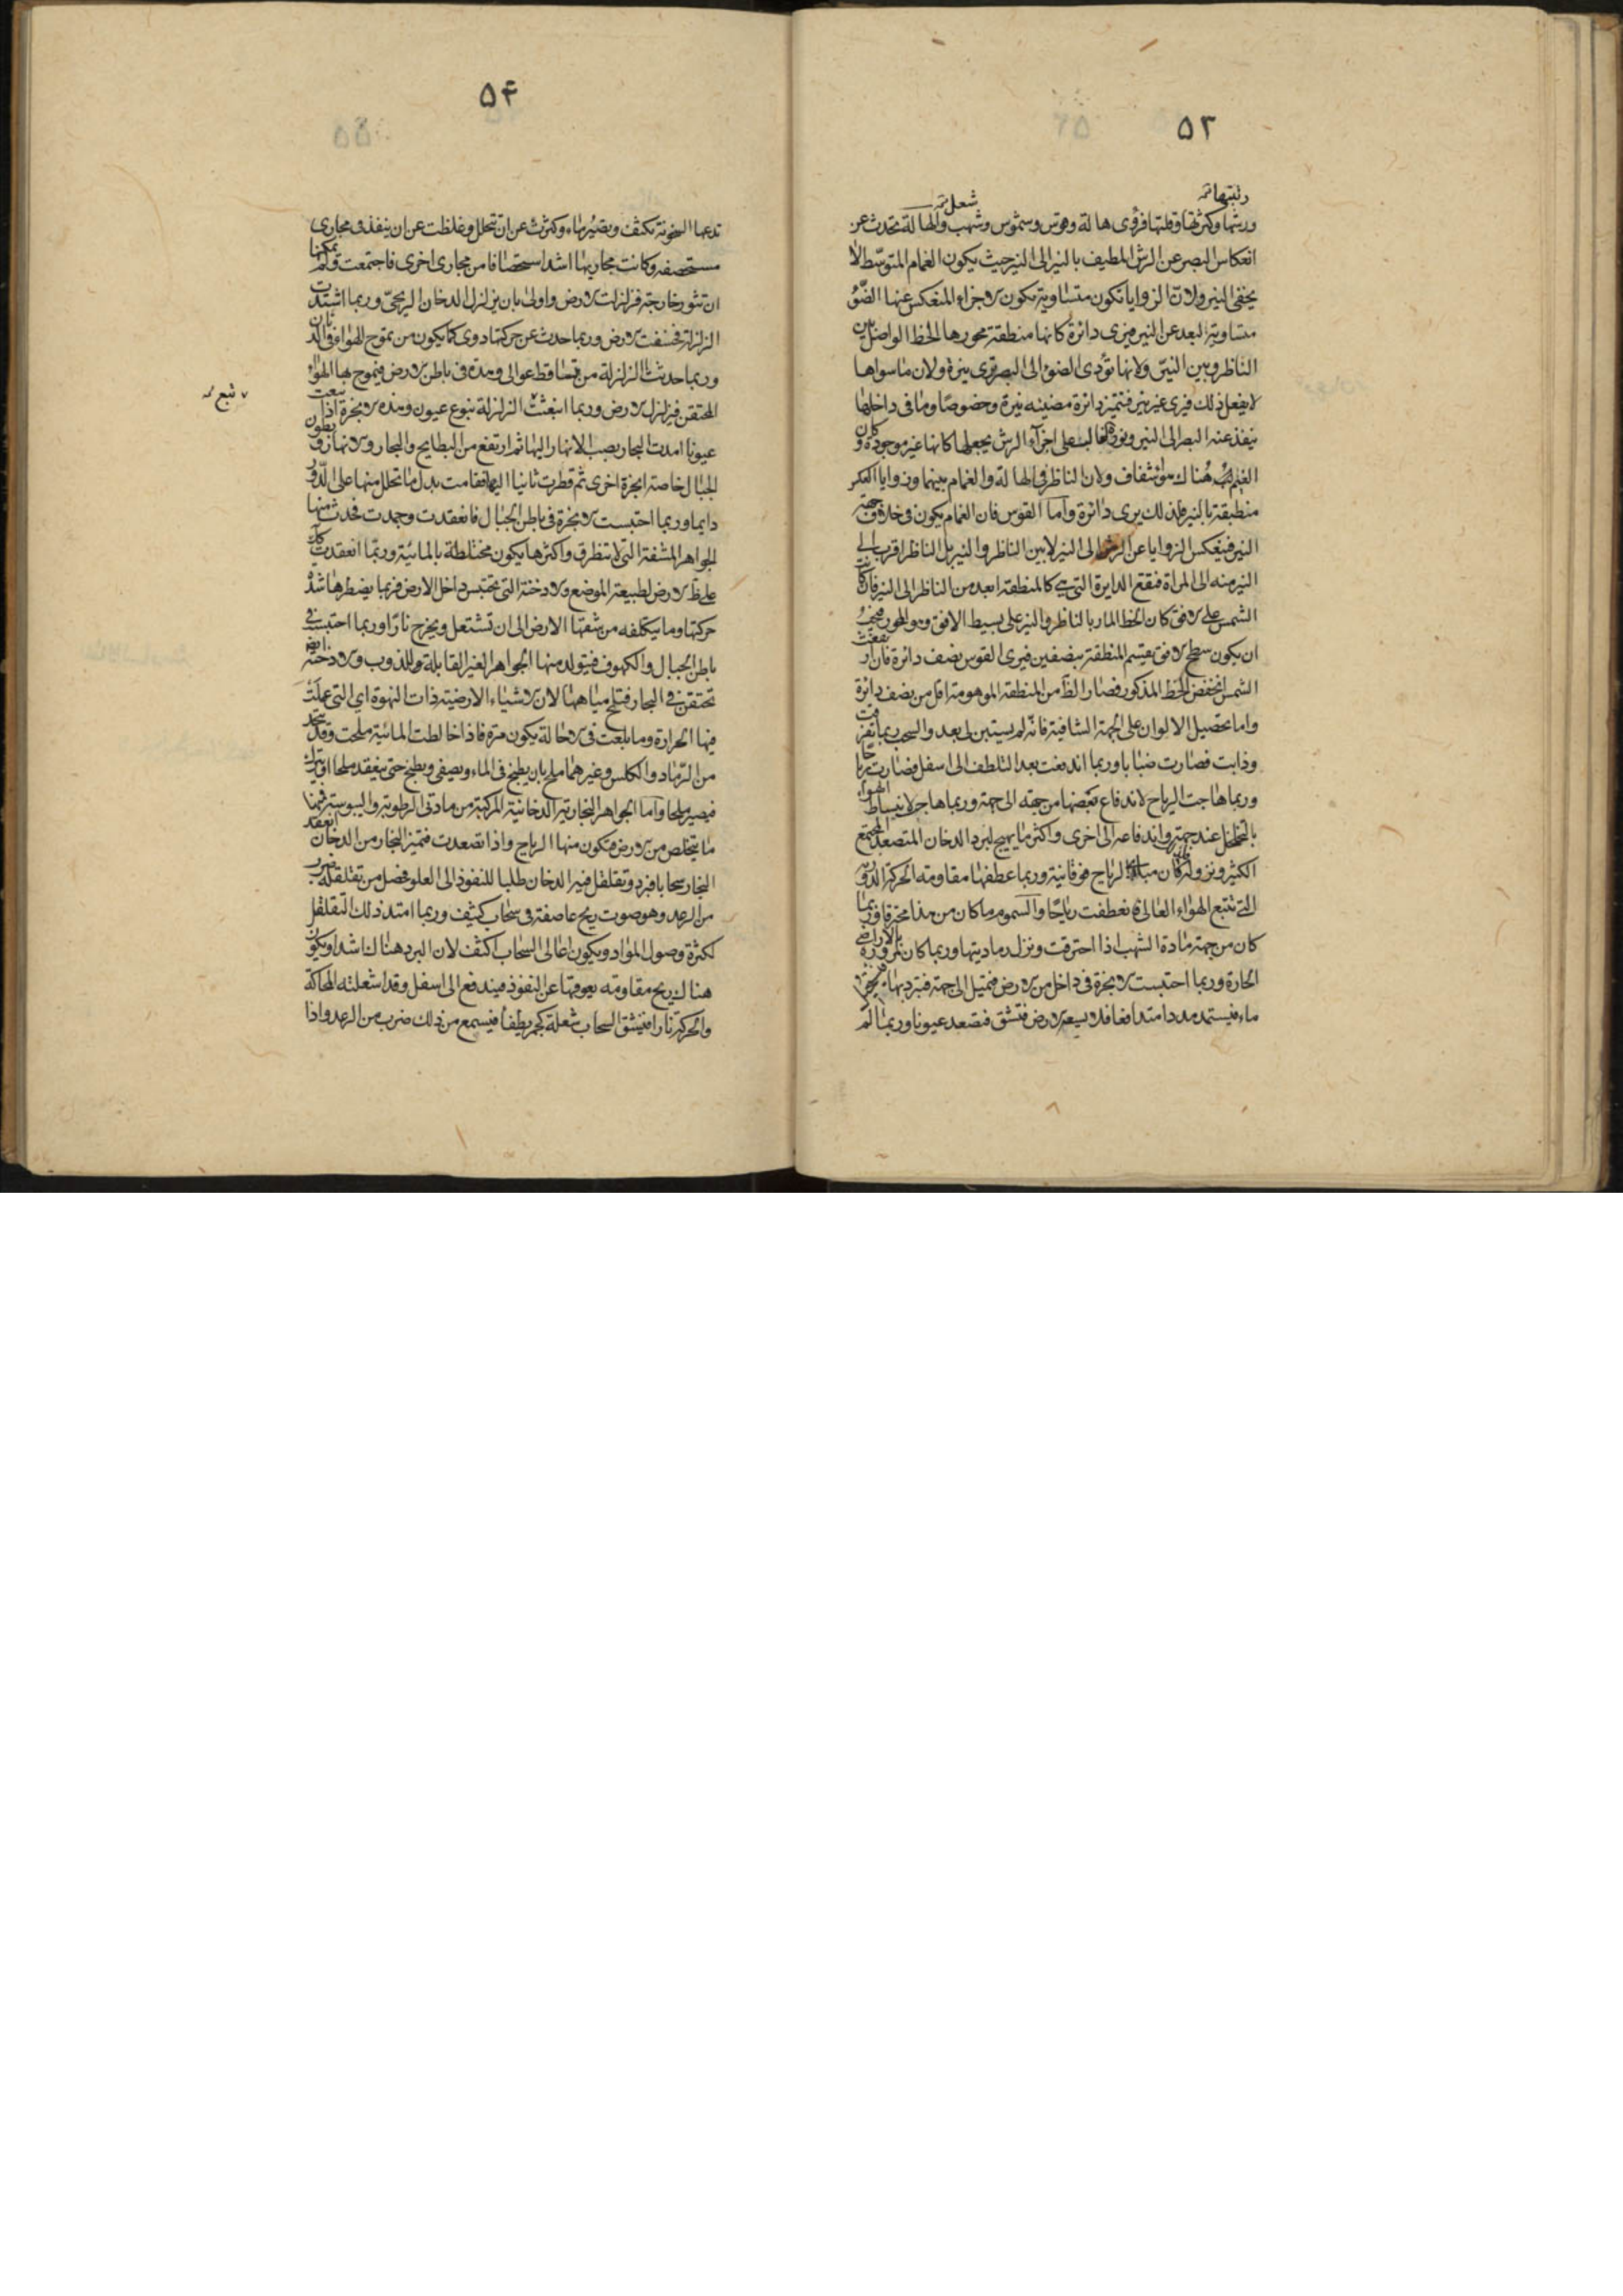 ۵۳
رتبتهاتہ
شعل تہ
ورشها وكثرتها وقلتها فرؤى هالة وقوس وشموس وشهب والهالة تحدث عن
انعكاس البصر عن الرش المطيف بالنير الى النير حيث يكون الغمام المتوسط لا
يخفى النير ولان الزوايا تكون متساوية تكون الاجزاء المنعكس عنها الضوء
متساوية البعد عن النير فيرى دائرة كانها منطقة محورها الخط الواصل بين
الناظر وبين النير ولانها تؤدى الضوء الى البصر فيرى نيرة ولان ما سواها
لا يفعل ذلك فيرى غير نير فتتميز دائرة مضيئه نيرة وخصوصا وما فى داخلها
ينفذ عنه البصر الى النير ونوره الغالب على اجزاء الرش يجعلها كانها غير موجودة وكان
الغيم هناك هواء شفاف ولان الناظر فى الهالة والغمام بينهما وزوايا العكس
منطبقة بالنير فلذلك يرى دائرة واما القوس فان الغمام يكون فى خلاف جهة
النير فينعكس الزوايا عن الرش الى النير لا بين الناظر والنير بل الناظر اقرب الى
النير منه الى المراة فتقع الدايرة التى هى كالمنطقة ابعد من الناظر الى النير فان كانت
الشمس على الافق كان الخط المار بالناظر والنير على بسيط الافق وهو المحور فيجب
ان يكون سطح الافق يقسم المنطقة بنصفين فيرى القوس نصف دائرة فان ارتفعت
الشمس انخفض الخط المذكور فصار الظاهر من المنطقة الموهومة اقل من نصف دائرة
واما تحصيل الالوان على الجهة الشافية فانه لم يستبن لى بعد والسحب ربما تفرقت
وذابت فصارت ضبابا وربما اندفعت بعد التلطف الى اسفل فصارت رياحا
وربما هاجت الرياح لاندفاع بعضها من جهة الى جهة وربما هاجت لانبساط الهواء
بالتخلخل عند جهة واندفاعه الى اخرى واكثر ما يهيج لبرد الدخان المتصعد المجتمع
الكثير ونزوله فان مبادى الرياح فوقانية وربما عطفها مقاومة الحركة الدورية
التى تتبع الهواء العالى فانعطفت رياحا والسموم ما كان من هذا محترقا وربما
كان من جهة مادة الشهب اذا احترقت ونزل رماديتها وربما كان لمروره بالاراضى
الحارة وربما احتبست الابخرة فى داخل من الارض فتميل الى جهة فتبرد بها
ماء فيستمد مددا متدافعا فلا يسعه الارض فتنشق فتصعد عيونا وربما لم
۵۴
تدعها السخونة تكثف وتصير ماء وكثرت عن ان تتحلل وغلظت عن ان ينفذ فى مجارى
مستحصفة وكانت مجاريها اشد استحصافا من مجارى اخرى فاجتمعت ولم يمكنها
ان تثور خارجة فزلزلت الارض واولى بان يزلزل الدخان الريحى وربما اشتدت
الزلزلة فخسفت الارض وربما حدث عن حركتها دوى كما يكون من تموج الهواء فى الدنان
وربما حدثت الزلزلة من تساقط عوالى وهدة فى باطن الارض فيموج بها الهواء
المحتقن فيزلزل الارض وربما انبعثت الزلزلة نبوع عيون وهذه الابخرة اذا نبعت
عيونا امدت البحار بصب الانهار اليها ثم ارتفع من البطايح والبحار والانهار وبطون
الجبال خاصة ابخرة اخرى ثم قطرت ثانيا اليها فقامت بدل ما تحلل منها على الدور
دايما وربما احتبست الابخرة فى باطن الجبال فانعقدت وجمدت فحدث منها
الجواهر المشفة التى لا تنطرق واكثرها يكون مختلطة بالمائية وربما انعقدت كلها
على ظ الارض لطبيعة الموضع والادخنة التى تحتبس داخل الارض فربما يضطرها شدة
حركتها وما يتكلفه من شقها الارض الى ان تشتعل ويخرج نارا وربما احتبست فى
باطن الجبال والكهوف فيتولد منها الجواهر الغير القابلة للذوب والادخنة ايضا
تحتقن فى البحار فتملح مياهها لان الاشياء الارضية ذات النهوة اى التى عملت
فيها الحرارة وما بلغت فى الاحالة يكون مرة فاذا خالطت المائية ملحت وقد يتخذ
من الرماد والكلس وغيرهما ملح بان يطبخ فى الماء ويصفى ويطبخ حتى ينعقد ملحا او يترك
فيصير ملحا واما الجواهر البخارية الدخانية المركبة من مادتى الرطوبة واليبوسة فمنها
ما يتخلص من الارض فتكون منها الرياح واذا تصعدت فتميز البخار من الدخان انعقد
البخار سحابا فبرد وتقلقل فيه الدخان طلبا للنفوذ الى العلو فحصل من تقلقله ضرب
من الرعد وهو صوت ريح عاصفة فى سحاب كثيف وربما امتد ذلك التقلقل
لكثرة وصول المواد ويكون اعالى السحاب اكثف لان البرد هناك اشد او يكون
هناك ريح مقاومه يعوقها عن النفوذ فيندفع الى اسفل وقد اشعلته المحاكة
والحركة نارا فينشق السحاب شعلة كجمر يطفأ فيسمع من ذلك ضرب من الرعد واذا
نبع